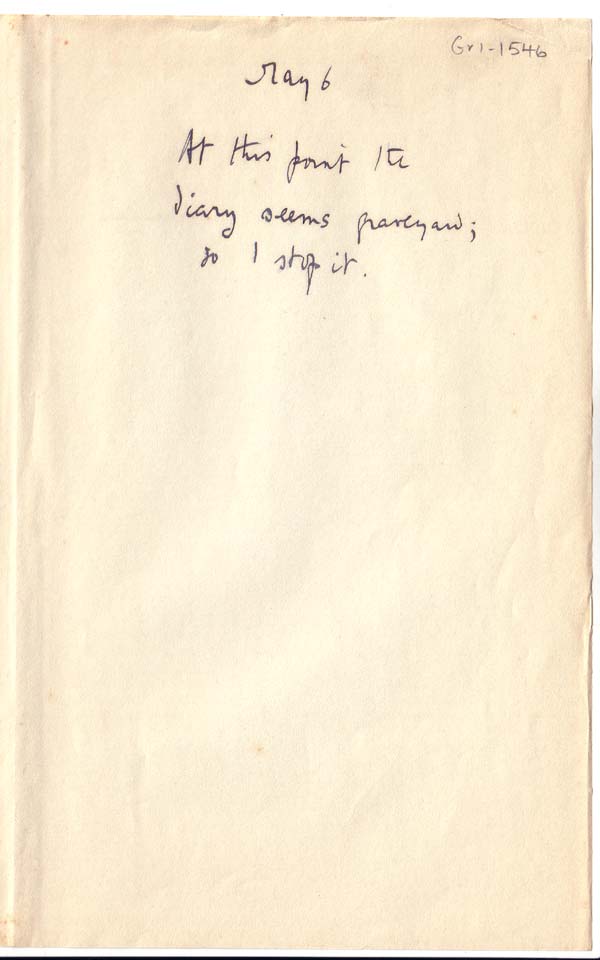 Gr1-1546
May 6
At this point the
diary seems graveyard;
so I stop it.